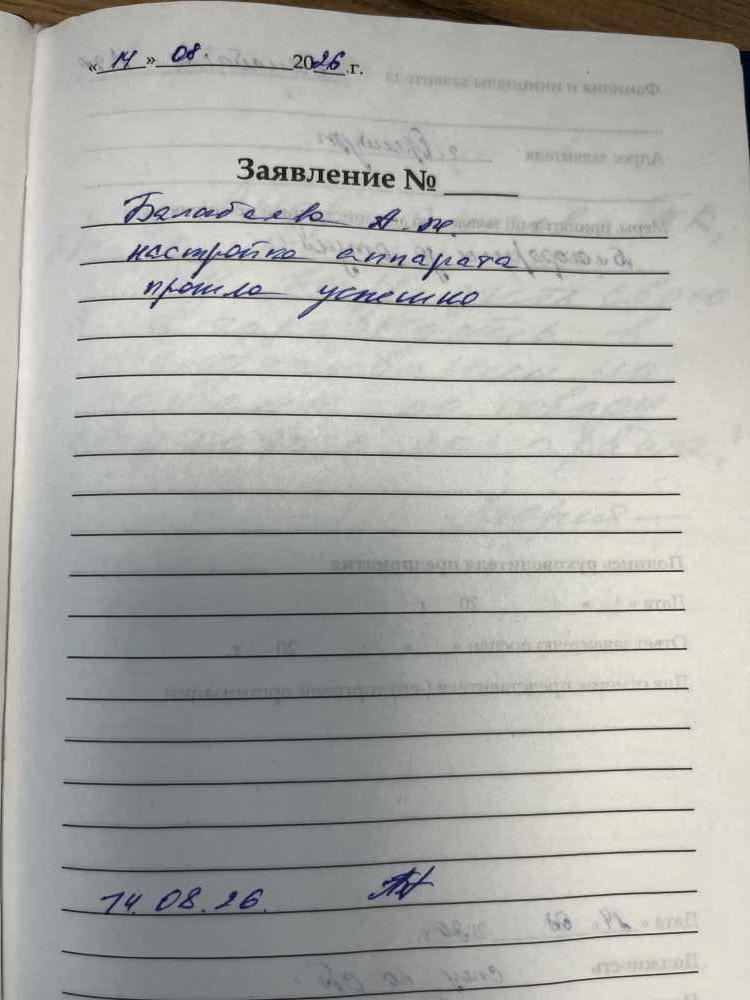 «14» 08. 2026.г.
Заявление № ____
Балабаева А.Ж.
настройка аппарата
прошла успешно
14.08.26.